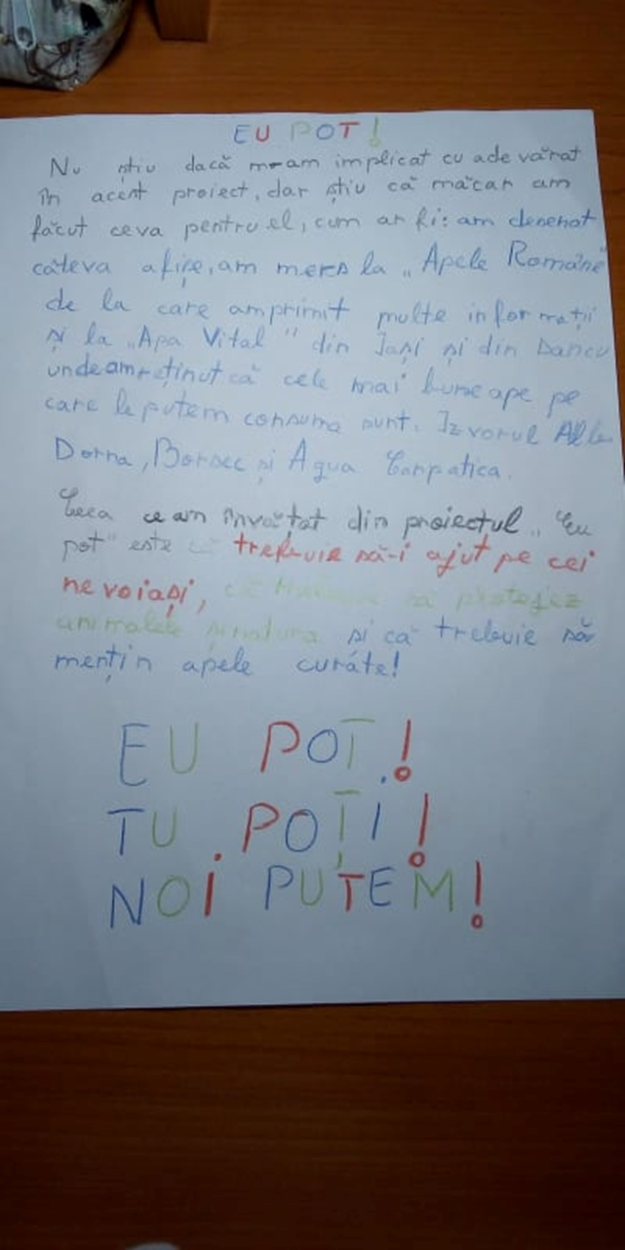 EU POT!
Nu știu dacă m-am implicat cu adevărat
în acest proiect, dar știu că măcar am
făcut ceva pentru el, cum ar fi: am desenat
câteva afișe, am mers la „Apele Române"
de la care am primit multe informații
și la „Apa Vital" din Iași și din Dancu
unde am reținut că cele mai bune ape pe
care le putem consuma sunt: Izvorul Alb
Dorna, Borsec și Aqua Carpatica.
Ceea ce am învățat din proiectul „Eu
pot" este că trebuie să-i ajut pe cei
nevoiași, că trebuie să protejez
animalele și natura și că trebuie să
mențin apele curate!
EU POT!
TU POȚI!
NOI PUTEM!